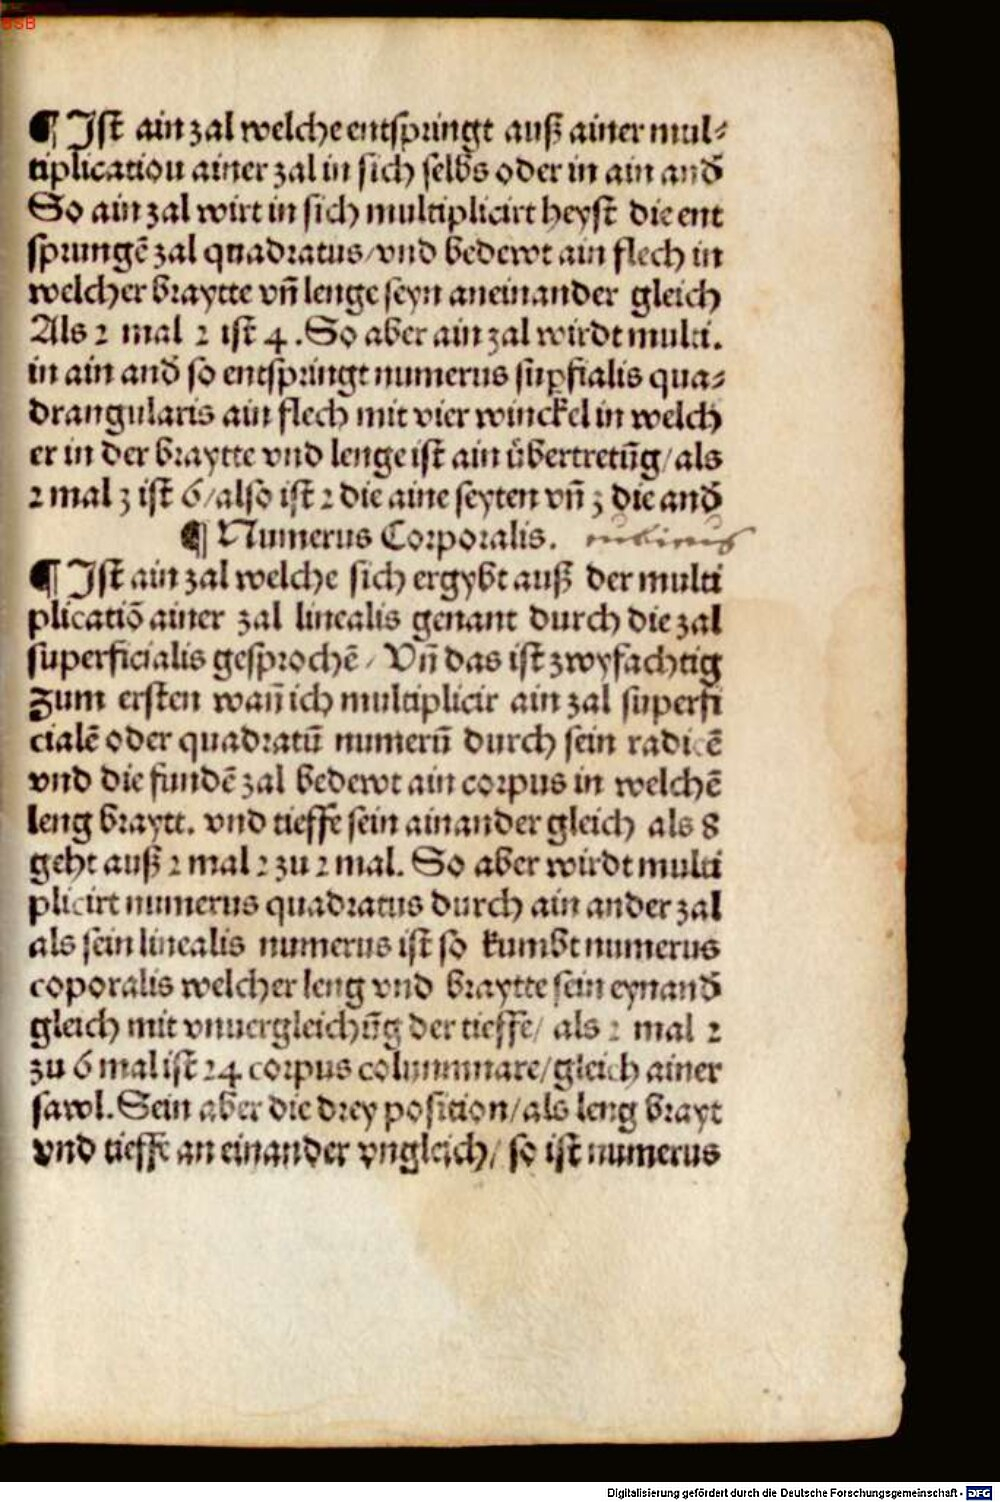 BSB
¶ Ist ain zal welche entspringt auß ainer mul⸗
tiplication ainer zal in sich selbs oder in ain and̃
So ain zal wirt in sich multiplicirt heyst die ent
sprungẽ zal quadratus/vnd bedewt ain flech in
welcher braytte vñ lenge seyn aneinander gleich
Als 2 mal 2 ist 4. So aber ain zal wirdt multi.
in ain and̃ so entspringt numerus suꝑfialis qua⸗
drangularis ain flech mit vier winckel in welch
er in der braytte vnd lenge ist ain übertretũg/als
2 mal 3 ist 6/also ist 2 die aine seyten vñ 3 die and̃
¶ Numerus Corporalis. cubicus
¶ Ist ain zal welche sich ergybt auß der multi
plicatiõ ainer zal linealis genant durch die zal
superficialis gesprochẽ/ Vñ das ist zwyfachtig
zum ersten wañ ich multiplicir ain zal superfi
cialẽ oder quadratũ numerũ durch sein radicẽ
vnd die fundẽ zal bedewt ain corpus in welchẽ
leng braytt. vnd tieffe sein ainander gleich als 8
geht auß 2 mal 2 zu 2 mal. So aber wirdt multi
plicirt numerus quadratus durch ain ander zal
als sein linealis numerus ist so kumbt numerus
coporalis welcher leng vnd braytte sein eynand̃
gleich mit vnuergleichũg der tieffe/ als 2 mal 2
zu 6 mal ist 24 corpus columnare/gleich ainer
sawl. Sein aber die drey position/als leng brayt
vnd tieffe an einander vngleich/ so ist numerus
Digitalisierung gefördert durch die Deutsche Forschungsgemeinschaft - DFG